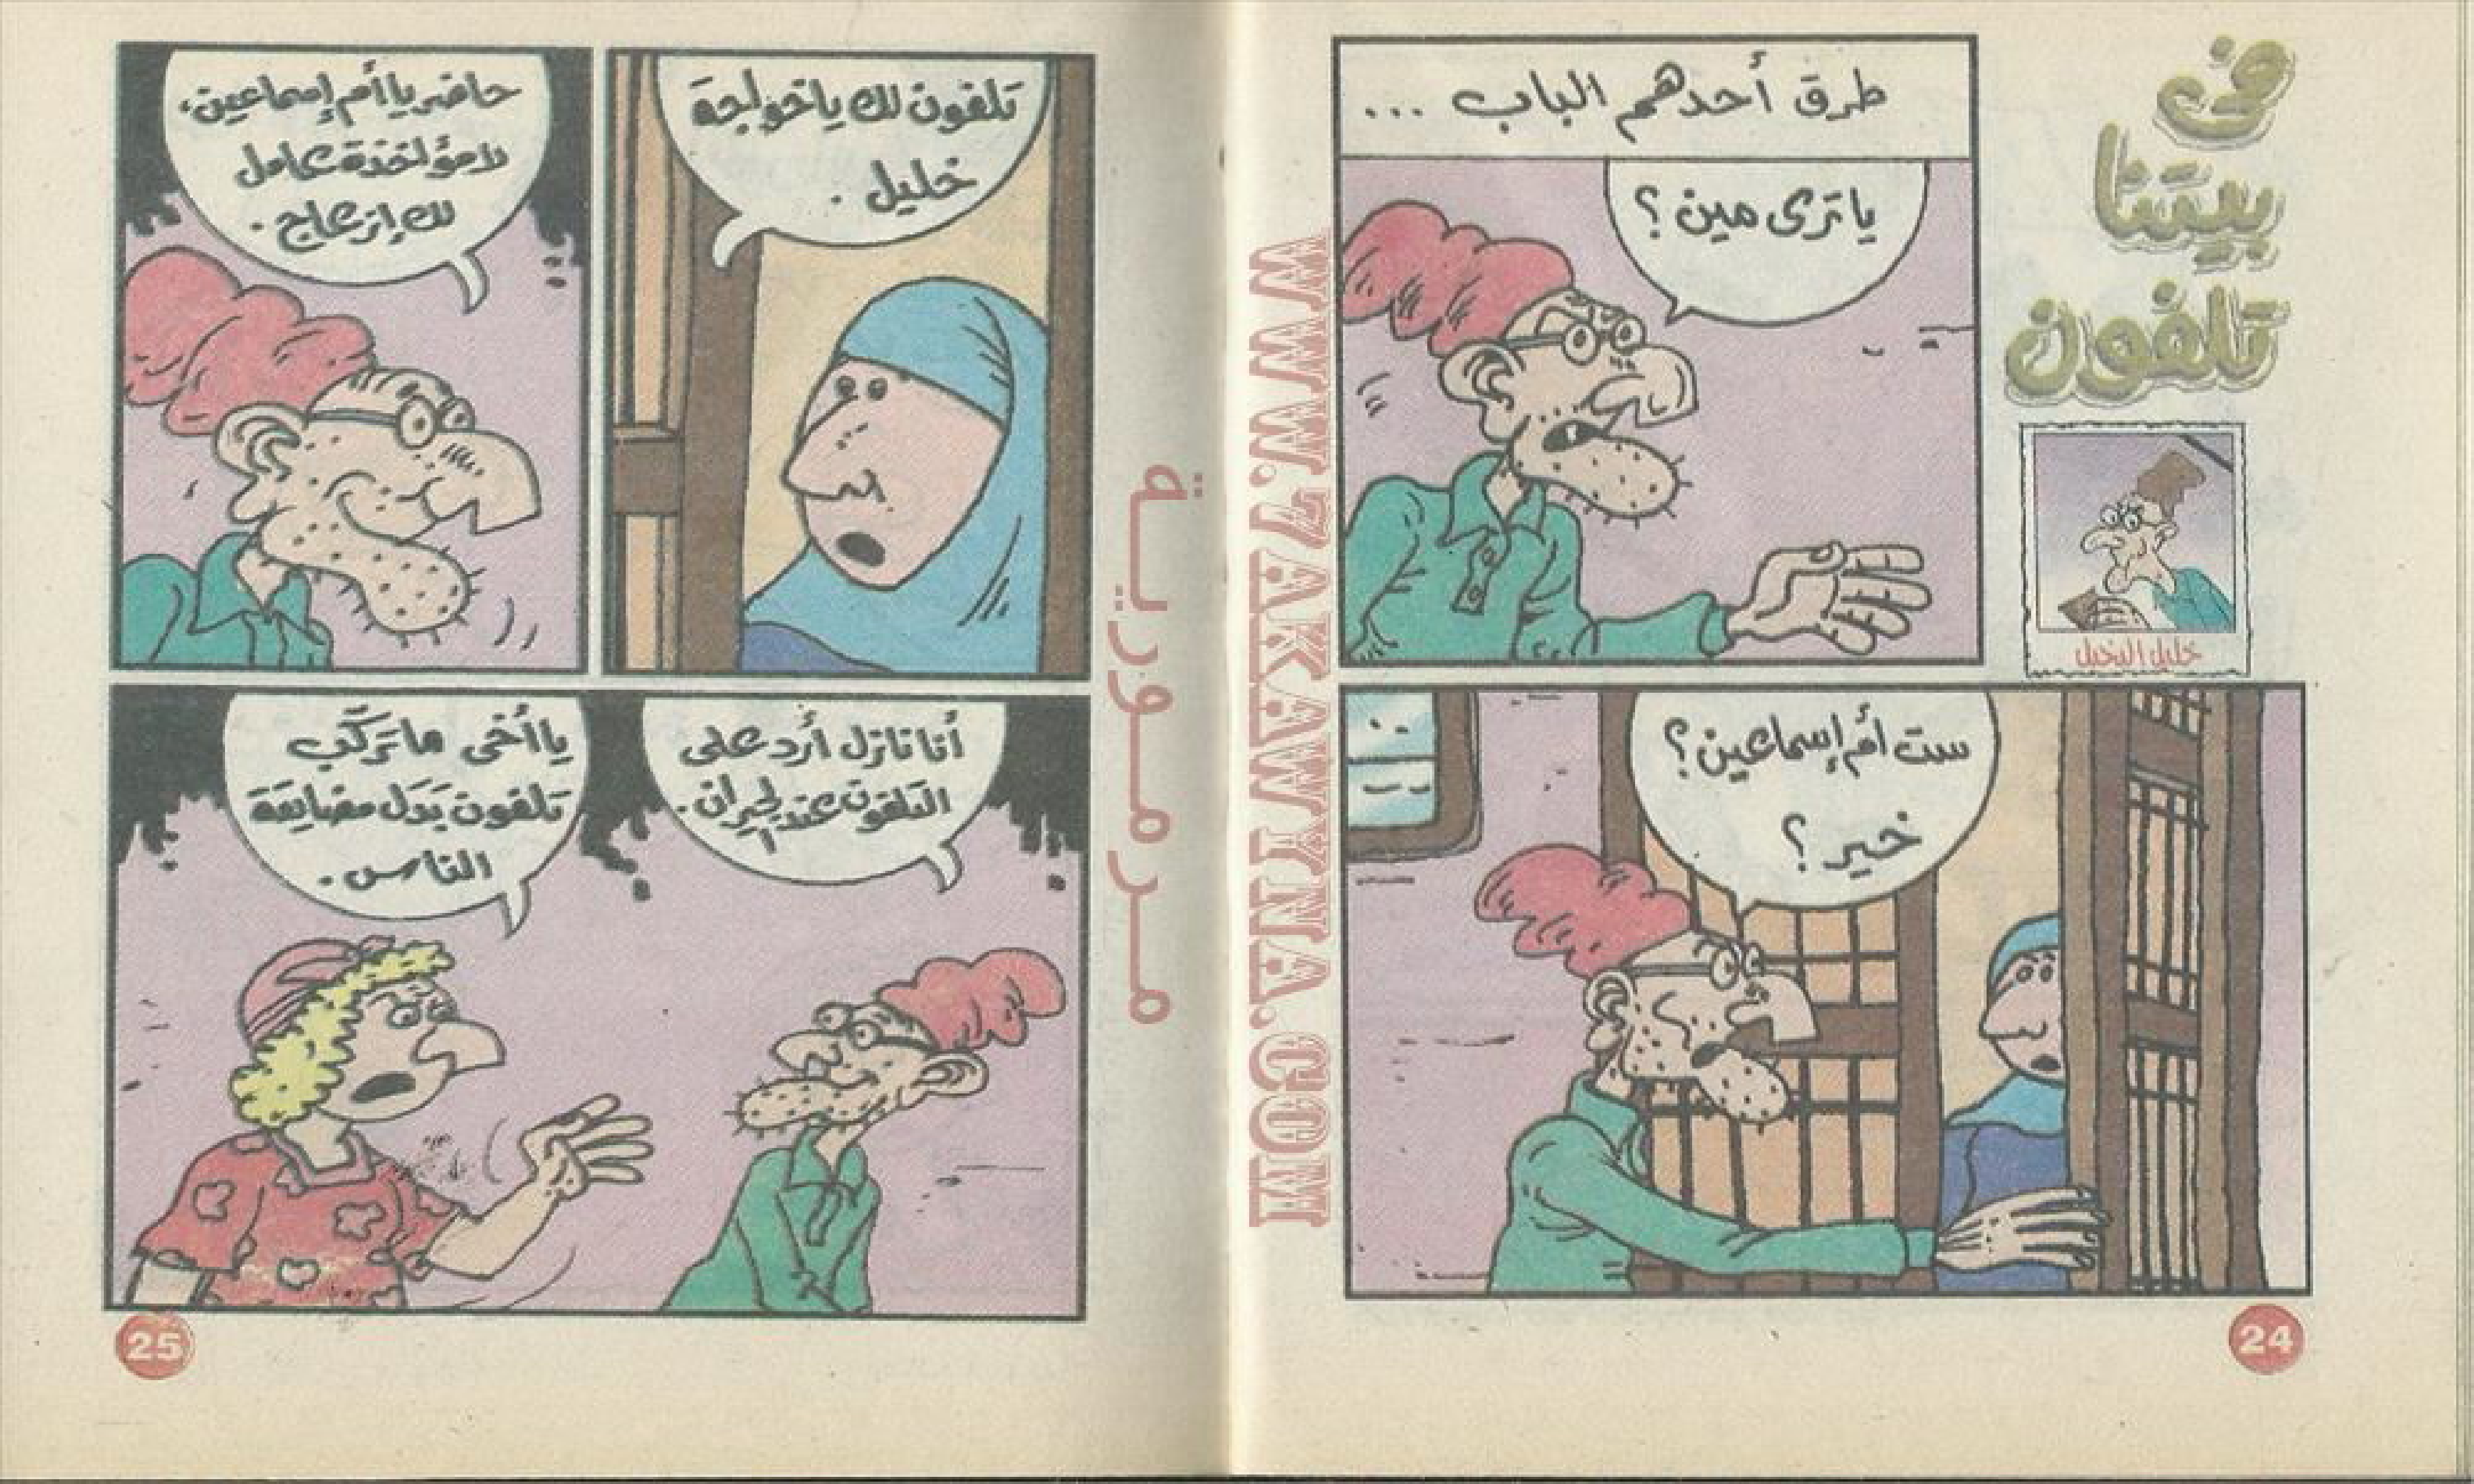 فى
بيتنا
تلفون
خليل البخيل
طرق أحدهم الباب ...
يا ترى مين؟
ست أم إسماعين؟
خير؟
24
WWW.ZAKAWYNA.COM
مرمورية
تلفون لك يا خواجة
خليل .
حاضر يا أم إسماعين،
لامؤاخذة عامل
لك إزعاج .
أنا نازل أرد على
التلفون عند الجيران .
يا أخى ما تركّب
تلفون بَدَل مضايقة
الناس .
25